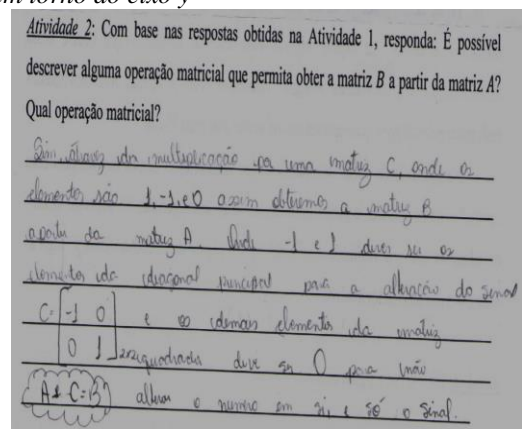 em torno do eixo y
Atividade 2: Com base nas respostas obtidas na Atividade 1, responda: É possível
descrever alguma operação matricial que permita obter a matriz B a partir da matriz A?
Qual operação matricial?
Sim, através da multiplicação por uma matriz C, onde os
elementos são 1, -1, e 0 assim obteremos a matriz B
a partir da matriz A. Onde -1 e 1 deve ser os
elementos da diagonal principal para a alteração do sinal
C= [-1 0 e os demais elementos da matriz
0 1]2x2 quadrada deve ser 0 para não
A C=B alterar o numero em si, e só o sinal.